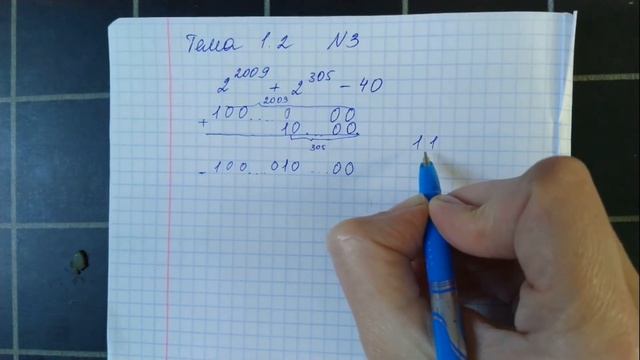 Тема 1.2 N3
2^2009 + 2^305 - 40
2009
100....0 00
+
10....00
305
- 100...010...00
11